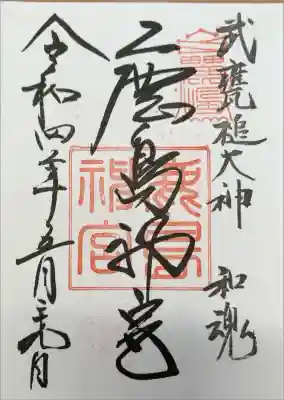 武甕槌大神 和魂
鹿島神宮
令和四年五月
鹿島
神宮